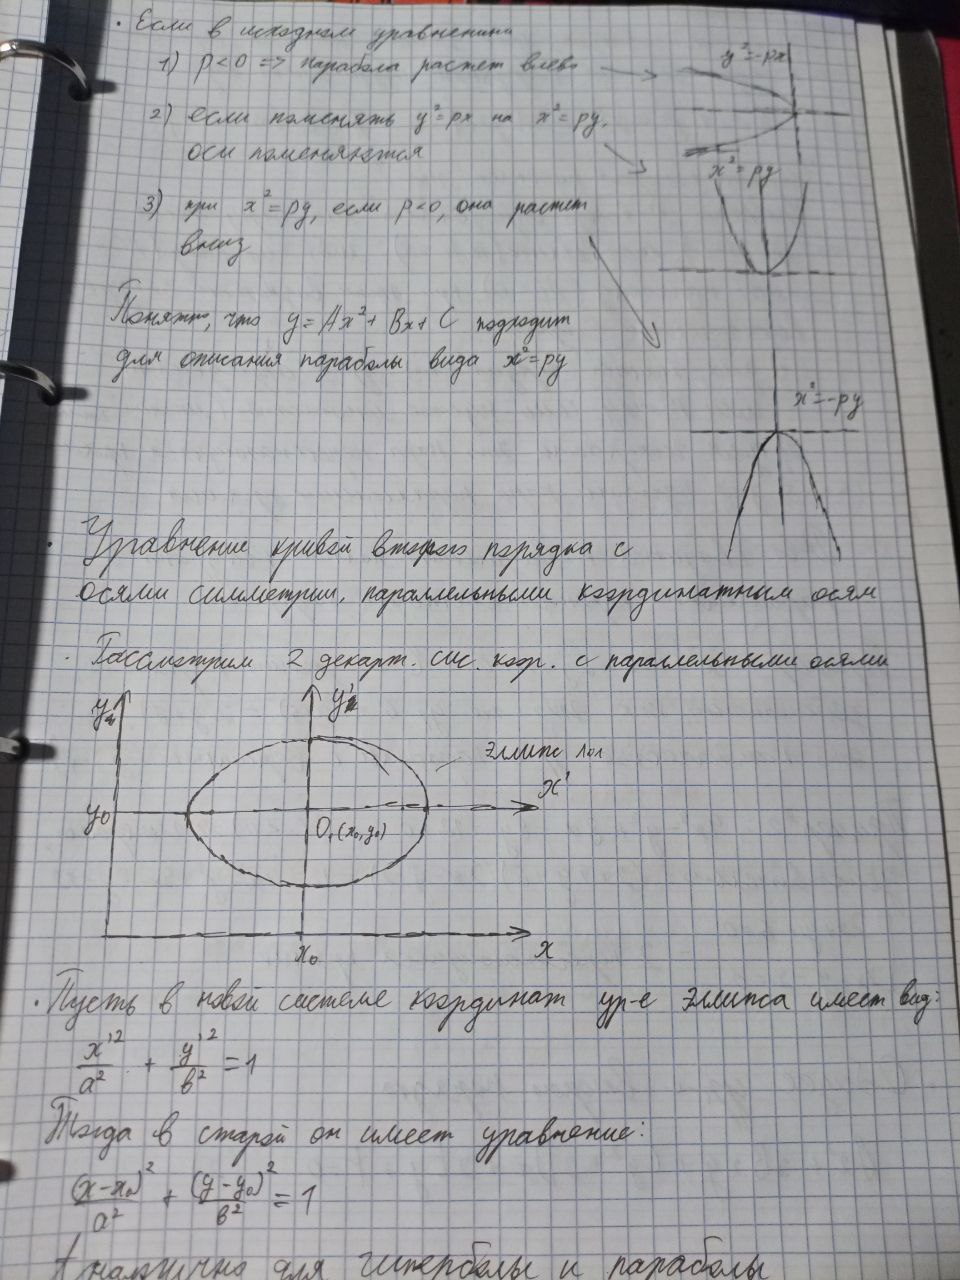 · Если в исходном уравнении
1) p<0 => парабола растет влево
y²=-px
2) если поменять y²=px на x²=py,
оси поменяются
x²=py
3) при x²=py, если p<0, она растет
вниз
Понятно, что y=Ax²+Bx+C подходит
для описания параболы вида x²=py
x²=-py
· Уравнение кривой второго порядка с
осями симметрии, параллельными координатным осям
· Рассмотрим 2 декарт. сис. коор. с параллельными осями
y
y'
эллипс лол
x'
y₀
O₁(x₀,y₀)
x₀
x
· Пусть в новой системе координат ур-е эллипса имеет вид:
x'²/a² + y'²/b² = 1
Тогда в старой он имеет уравнение:
(x-x₀)²/a² + (y-y₀)²/b² = 1
Аналогично для гиперболы и параболы